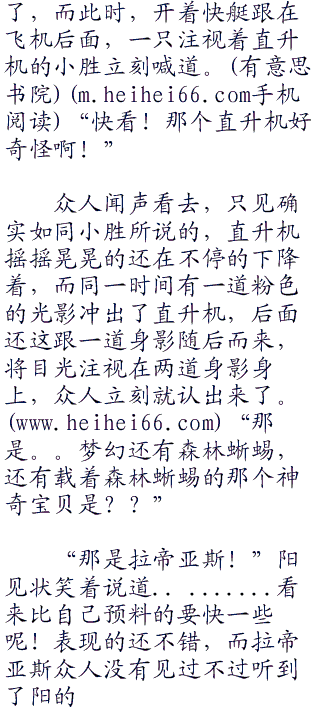 了，而此时，开着快艇跟在
飞机后面，一只注视着直升
机的小胜立刻喊道。(有意思
书院) (m.heihei66.com手机
阅读) “快看！那个直升机好
奇怪啊！”
众人闻声看去，只见确
实如同小胜所说的，直升机
摇摇晃晃的还在不停的下降
着，而同一时间有一道粉色
的光影冲出了直升机，后面
还这跟一道身影随后而来，
将目光注视在两道身影身
上，众人立刻就认出来了。
(www.heihei66.com) “那
是。。梦幻还有森林蜥蜴，
还有载着森林蜥蜴的那个神
奇宝贝是？？”
“那是拉帝亚斯！”阳
见状笑着说道.. .......看
来比自己预料的要快一些
呢！表现的还不错，而拉帝
亚斯众人没有见过不过听到
了阳的